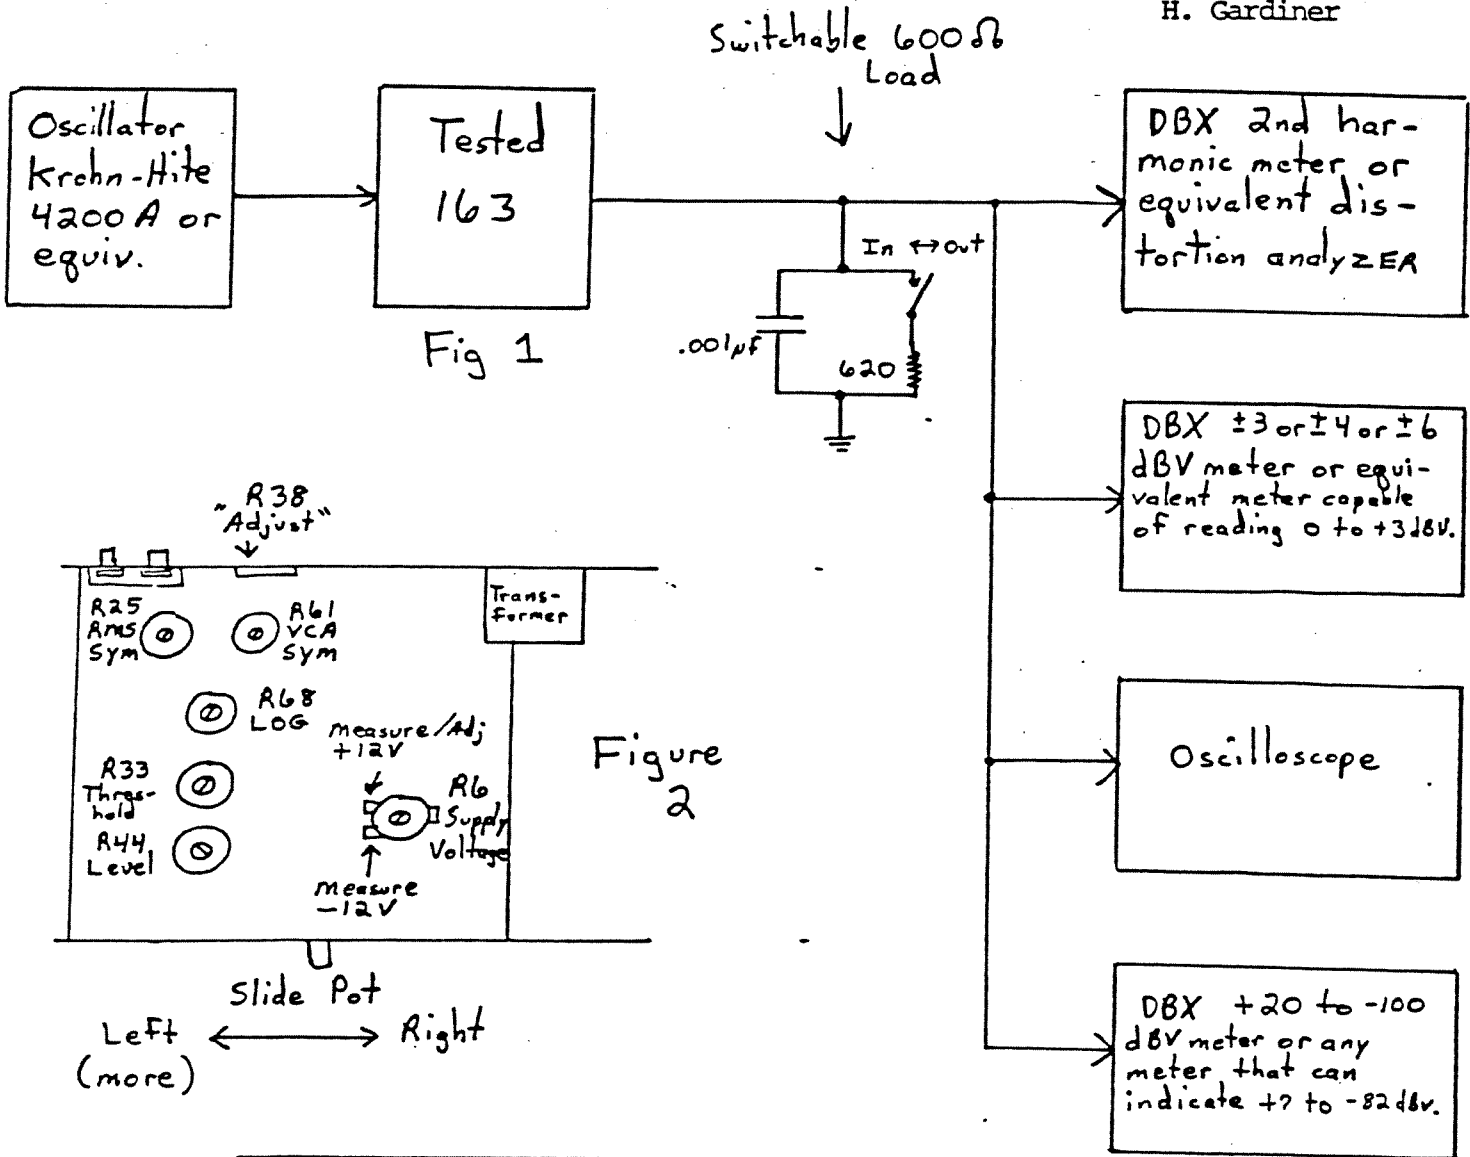 H. Gardiner
Switchable 600Ω
Load
Oscillator
Krohn-Hite
4200A or
equiv.
Tested
163
Fig 1
In ↔ out
.001µf
620
DBX 2nd har-
monic meter or
equivalent dis-
tortion analyzER
DBX ±3 or ±4 or ±6
dBV meter or equi-
valent meter capable
of reading 0 to +3dBV.
Oscilloscope
DBX +20 to -100
dBV meter or any
meter that can
indicate +7 to -82 dBv.
R38
"Adjust"
R25
Rms
Sym
R61
VCA
Sym
Trans-
former
R68
LOG
measure/Adj
+12V
R33
Thres-
hold
R6
Supply
Voltage
R44
Level
measure
-12V
Figure
2
Slide Pot
Left ↔ Right
(more)